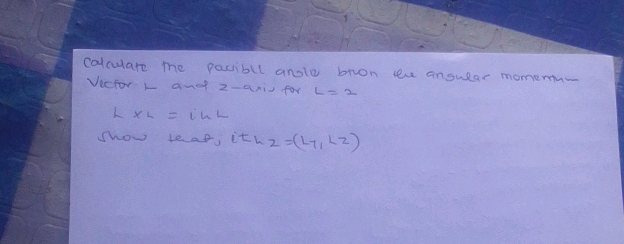 Calculate the possibll angle btwn the angular momemum
Vector L and z-axis for L = 2
L x L = ihL
Show that, ihLz=(Ly, Lz)